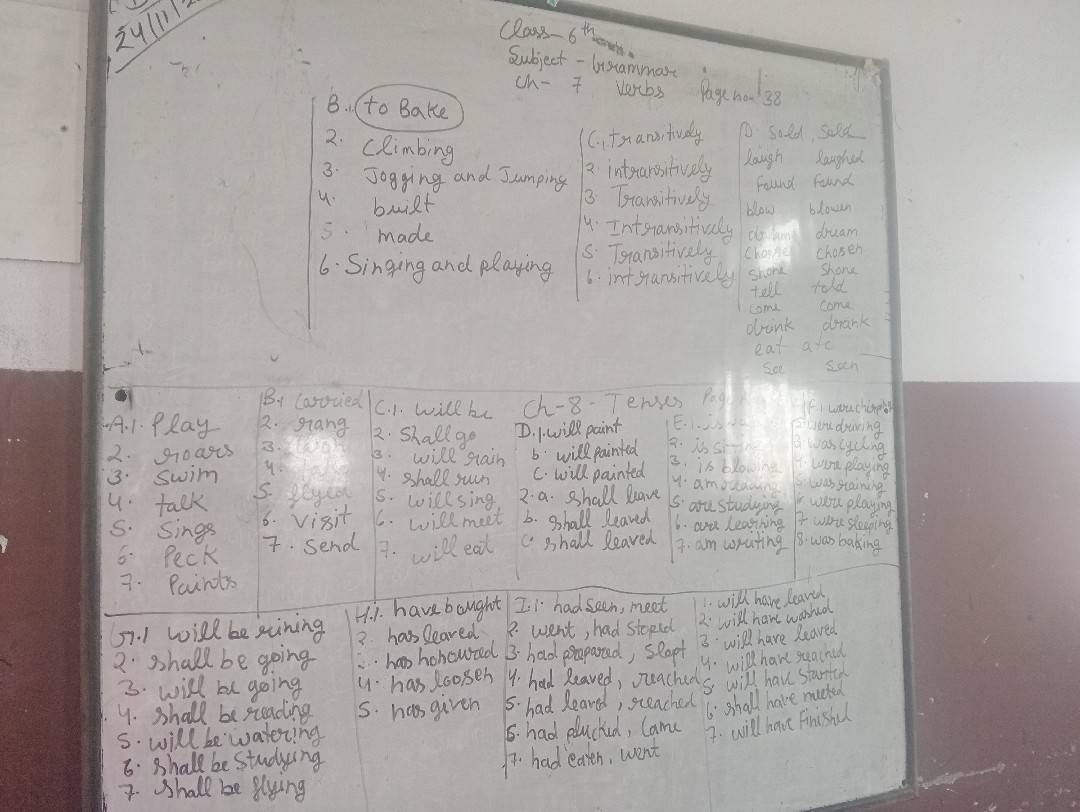 24/11/2
Class- 6th
Subject - Grammar
Ch- 7 Verbs Page no- 138
B. 1. to Bake
2. Climbing
3. Jogging and Jumping
4. built
5. made
6. Singing and playing
C. 1, transitively
2. intransitively
3. Transitively
4. Intransitively
5. Transitively
6. intransitively
D. Sold, Sold
laugh laughed
Found Found
blow blowen
dream dream
chosen
Shone Shone
tell told
come come
drink drank
eat ate
See Seen
Ch-8- Tenses
A.1. Play
2. roars
3. Swim
4. talk
5. Sings
6. Peck
7. Paints
B.1 Carried
2. rang
3.
4.
5. flyed
6. Visit
7. Send
C.1. will be
2. Shall go
3. will rain
4. shall run
5. will sing
6. will meet
7. will eat
D.1. will paint
b. will painted
C. will painted
2. a. shall leave
b. shall leaved
C. shall leaved
E.1. is
2. is
3. is blowing
4. am reading
5. are studying
6. are learning
7. am writing
F.1. were
2. were driving
3. was cycling
4. were playing
5. was raining
6. were playing
7. were sleeping
8. was baking
G.1 will be rining
2. shall be going
3. will be going
4. shall be reading
5. will be watering
6. shall be studying
7. shall be flying
H.1. have bought
2. has leaved
has honoured
4. has loosen
5. has given
I.1. had seen, meet
2. went, had stoped
3. had prepared, slept
4. had leaved, reached
5. had leaved, reached
6. had plucked, Came
7. had eaten, went
1. will have leaved
2. will have washed
3. will have leaved
4. will have reached
5. will have started
6. shall have meeted
7. will have Finished